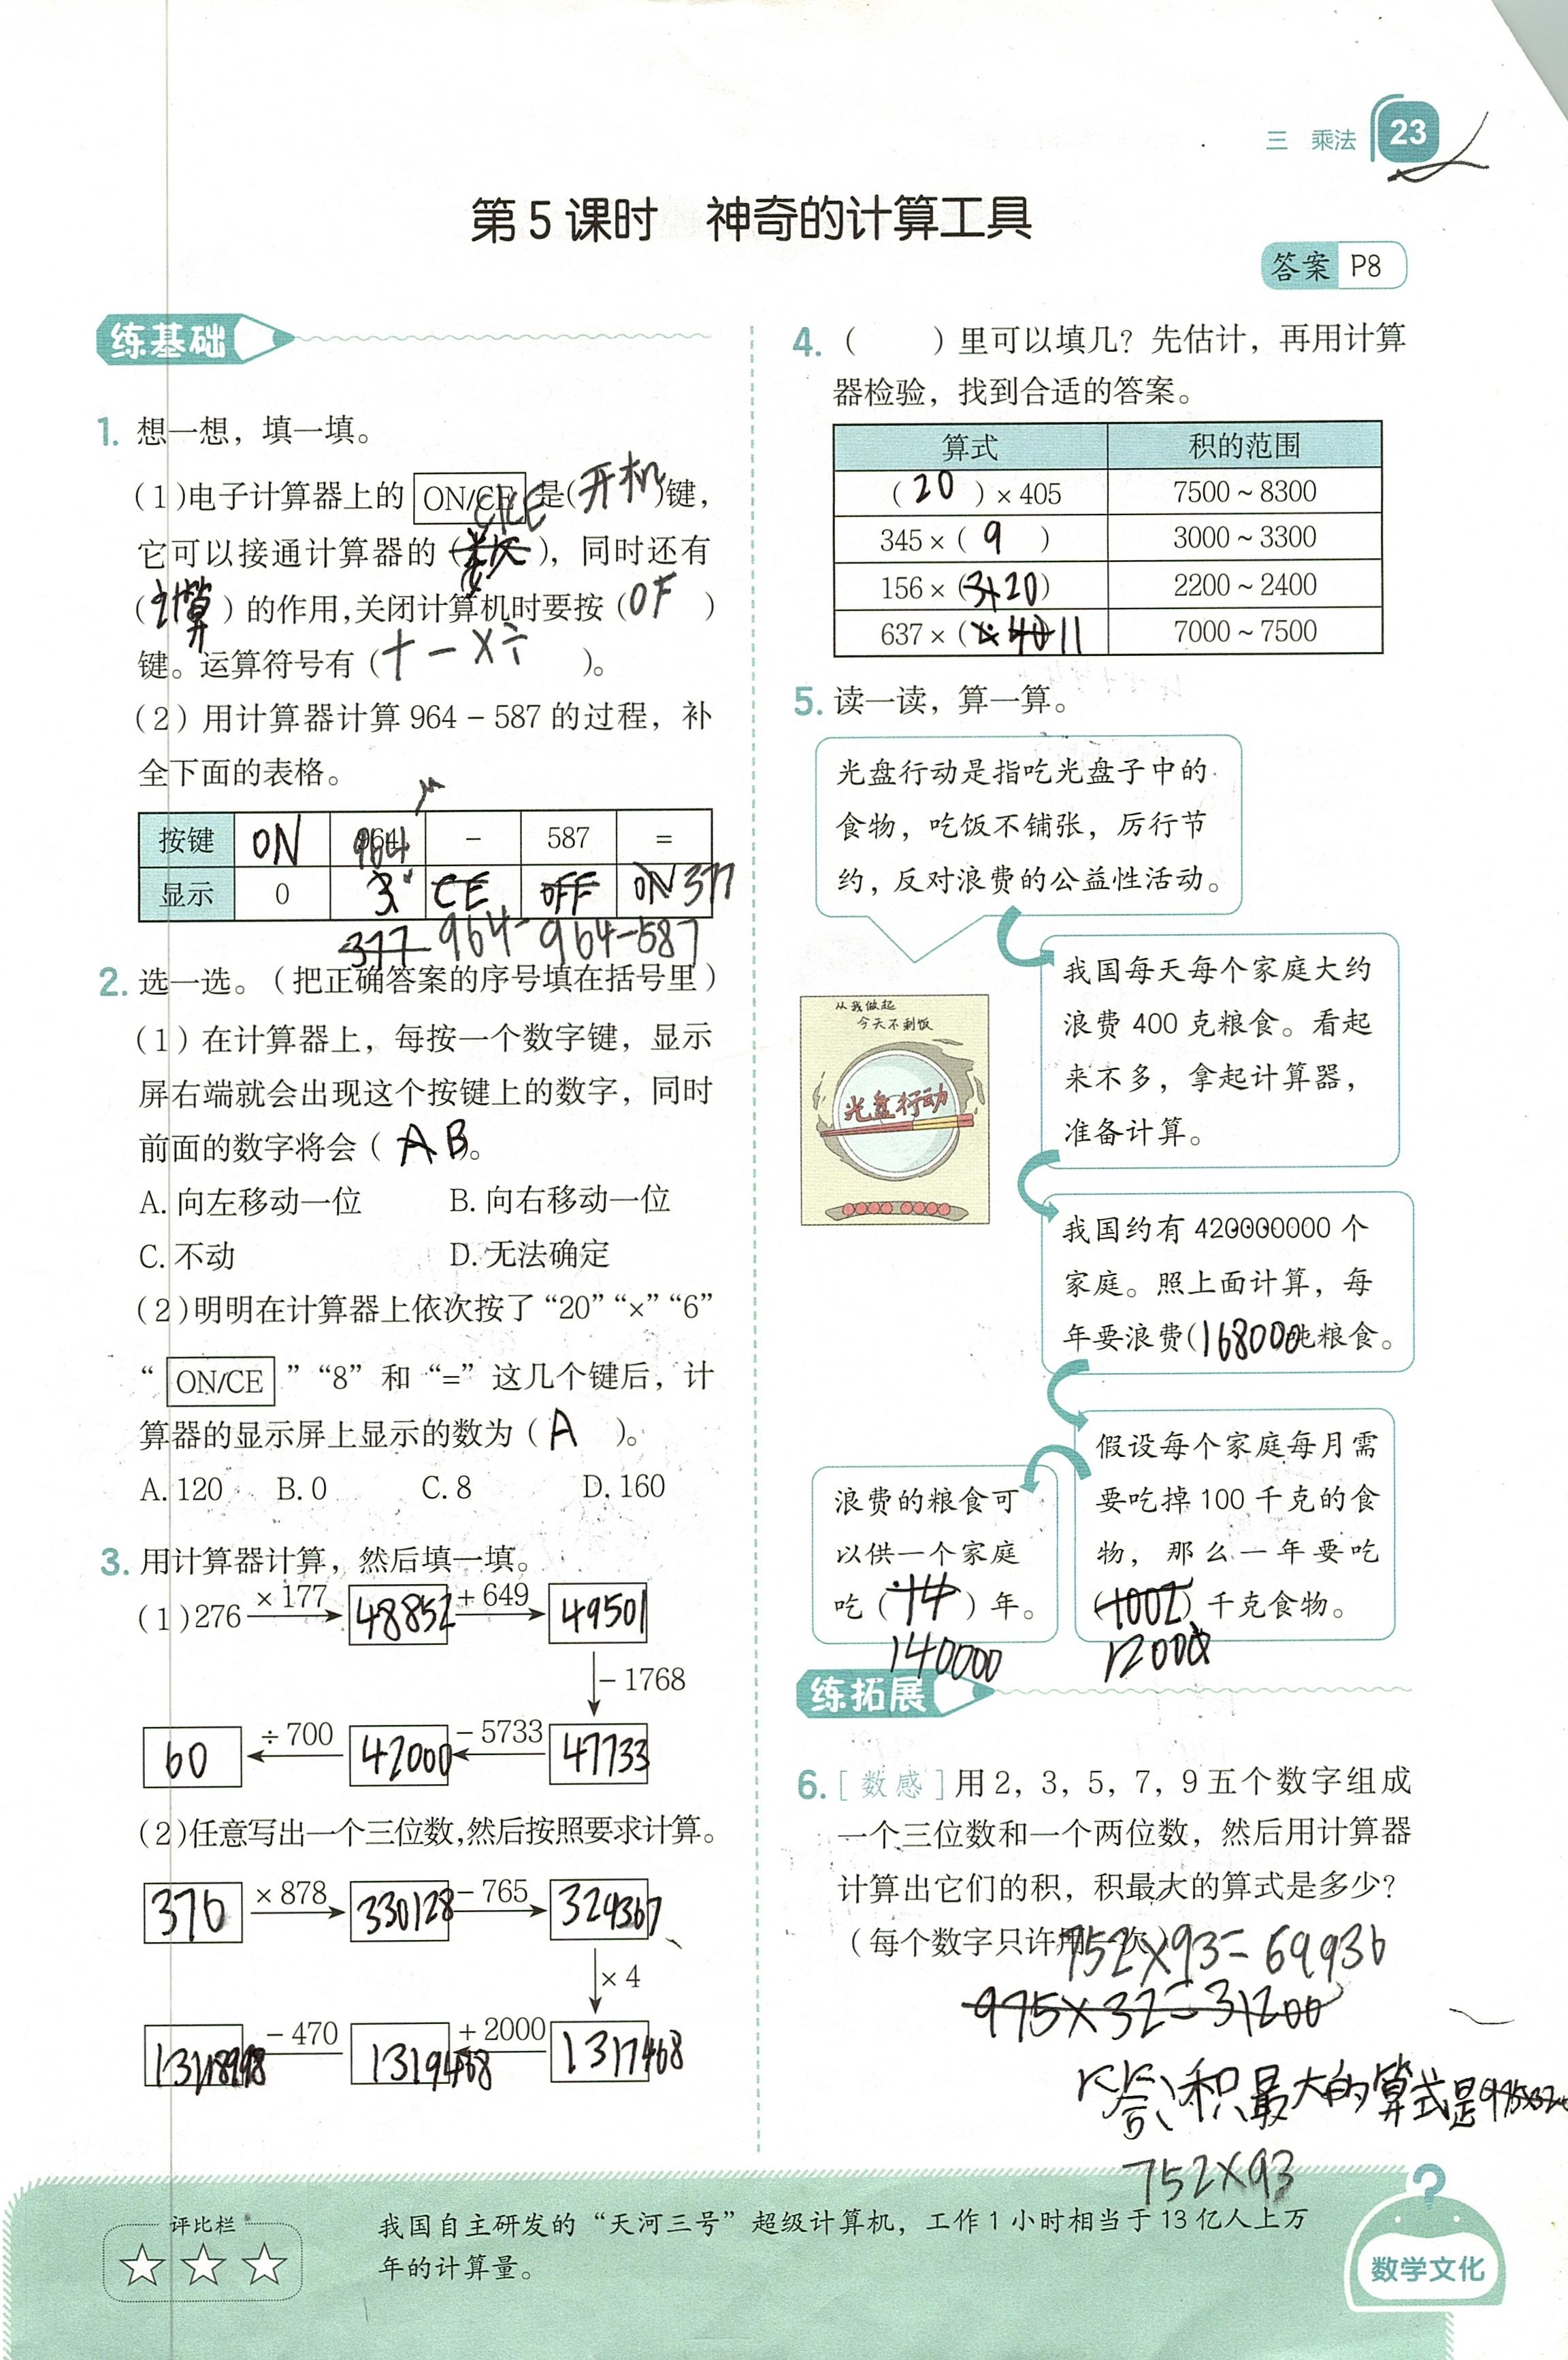 三 乘法 23
第5课时 神奇的计算工具
答案 P8
练基础
1. 想一想，填一填。
(1)电子计算器上的 ON/CE 是(开机)键，
它可以接通计算器的( )，同时还有
(计算)的作用,关闭计算机时要按(OF )
键。运算符号有(+－×÷ )。
(2) 用计算器计算 964－587 的过程，补
全下面的表格。
按键 ON 964 － 587 =
显示 0 3 CE OFF ON 377
377 964- 964-587
2. 选一选。（把正确答案的序号填在括号里）
(1) 在计算器上，每按一个数字键，显示
屏右端就会出现这个按键上的数字，同时
前面的数字将会( A B 。
A. 向左移动一位 B. 向右移动一位
C. 不动 D. 无法确定
(2)明明在计算器上依次按了“20”“×”“6”
“ ON/CE ”“8”和“=”这几个键后，计
算器的显示屏上显示的数为( A )。
A. 120 B. 0 C. 8 D. 160
3. 用计算器计算，然后填一填。
(1)276 ×177 48852 +649 49501
－1768
60 ÷700 42000 －5733 47733
(2)任意写出一个三位数,然后按照要求计算。
376 ×878 330128 －765 329367
×4
－470 1319468 +2000 1317468
4. （ ）里可以填几？先估计，再用计算
器检验，找到合适的答案。
算式 积的范围
( 20 )×405 7500~8300
345×( 9 ) 3000~3300
156×( 20) 2200~2400
637×( 11 7000~7500
5. 读一读，算一算。
光盘行动是指吃光盘子中的
食物，吃饭不铺张，厉行节
约，反对浪费的公益性活动。
我国每天每个家庭大约
浪费 400 克粮食。看起
来不多，拿起计算器，
准备计算。
从我做起
今天不剩饭
光盘行动
我国约有 420000000 个
家庭。照上面计算，每
年要浪费(168000吨粮食。
假设每个家庭每月需
要吃掉 100 千克的食
物，那么一年要吃
(1002) 千克食物。
12000
浪费的粮食可
以供一个家庭
吃(14)年。
140000
练拓展
6. [数感] 用 2，3，5，7，9 五个数字组成
一个三位数和一个两位数，然后用计算器
计算出它们的积，积最大的算式是多少？
（每个数字只许用一次）
752×93=69936
975×32=31200
答：积最大的算式是975×32
752×93
评比栏
我国自主研发的“天河三号”超级计算机，工作 1 小时相当于 13 亿人上万
年的计算量。
数学文化